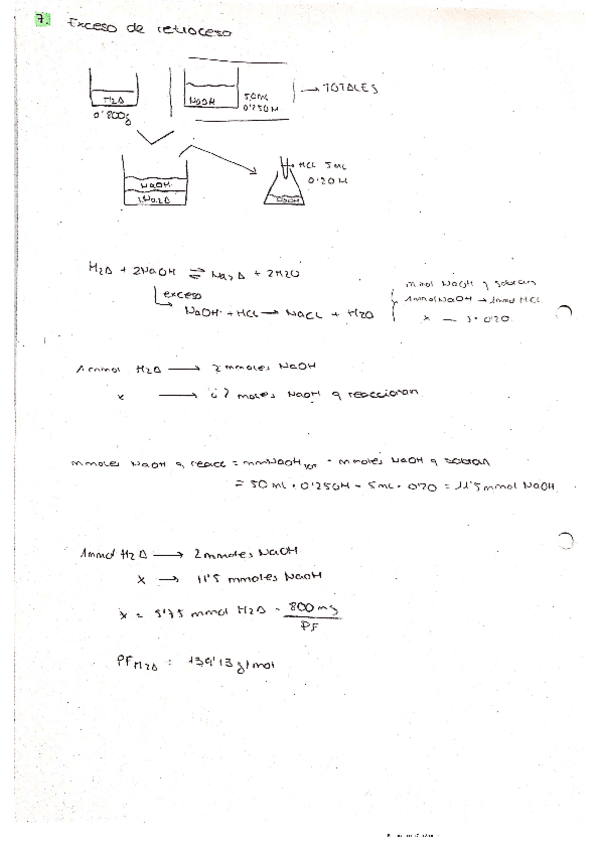 7. Exceso de retroceso
H2A
0'800g
NaOH
50mL
0'250M
→ TOTALES
NaOH
Na2A
HCl 5mL
0'20M
NaOH
H2A + 2NaOH ⇌ Na2A + 2H2O
exceso
NaOH + HCl → NaCl + H2O
mmol NaOH q sobran
1mmol NaOH → 1mmol HCl
x — 5·0'20
1 mmol H2A → 2 mmoles NaOH
x → ¿? moles NaOH q reaccionan
mmoles NaOH q reacc = mmNaOH TOT - mmoles NaOH q sobran
= 50 mL · 0'250M - 5mL · 0'20 = 11'5 mmol NaOH
1mmol H2A → 2 mmoles NaOH
x → 11'5 mmoles NaOH
x = 5'75 mmol H2A = 800mg / PF
PF H2A = 139'13 g/mol